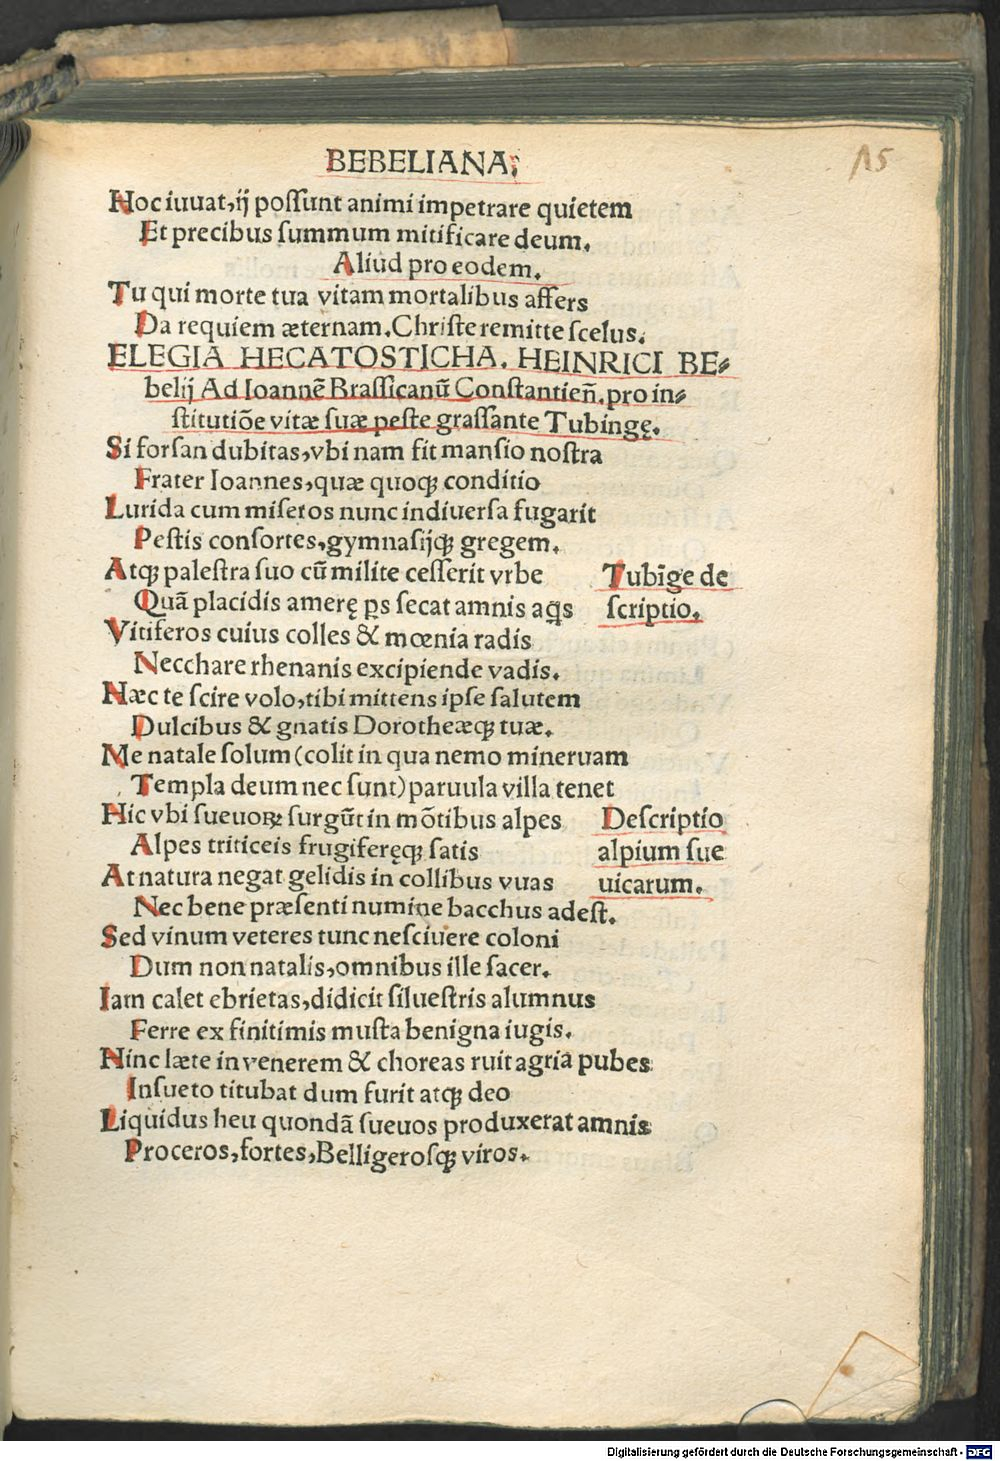 BEBELIANA;
15
Hoc iuuat,ij poſſunt animi impetrare quietem
Et precibus ſummum mitificare deum.
Aliud pro eodem.
Tu qui morte tua vitam mortalibus affers
Da requiem æternam.Chriſte remitte ſcelus.
ELEGIA HECATOSTICHA. HEINRICI BE⸗
belij Ad Ioannē Braſſicanū Conſtantien̄.pro in⸗
ſtitutiōe vitæ ſuæ peſte graſſante Tubingę.
Si forſan dubitas,vbi nam fit manſio noſtra
Frater Ioannes,quæ quoqꝫ conditio
Lurida cum miſeros nunc indiuerſa fugarit
Peſtis conſortes,gymnaſijqꝫ gregem.
Atqꝫ paleſtra ſuo cū milite ceſſerit vrbe
Tubīge de
Quā placidis amerę ꝑs ſecat amnis aq̄s
ſcriptio.
Vitiferos cuius colles & mœnia radis
Necchare rhenanis excipiende vadis.
Hæc te ſcire volo,tibi mittens ipſe ſalutem
Dulcibus & gnatis Dorotheæqꝫ tuæ.
Me natale ſolum (colit in qua nemo mineruam
Templa deum nec ſunt) paruula villa tenet
Hic vbi ſueuoꝝ ſurgūt in mōtibus alpes
Deſcriptio
Alpes triticeis frugiferęqꝫ ſatis
alpium ſue
At natura negat gelidis in collibus vuas
uicarum.
Nec bene præſenti numine bacchus adeſt.
Sed vinum veteres tunc neſciuere coloni
Dum non natalis,omnibus ille ſacer.
Iam calet ebrietas,didicit ſilueſtris alumnus
Ferre ex finitimis muſta benigna iugis.
Hinc læte in venerem & choreas ruit agria pubes
Inſueto titubat dum furit atqꝫ deo
Liquidus heu quondā ſueuos produxerat amnis
Proceros,fortes,Belligeroſqꝫ viros.
Digitalisierung gefördert durch die Deutsche Forschungsgemeinschaft - DFG